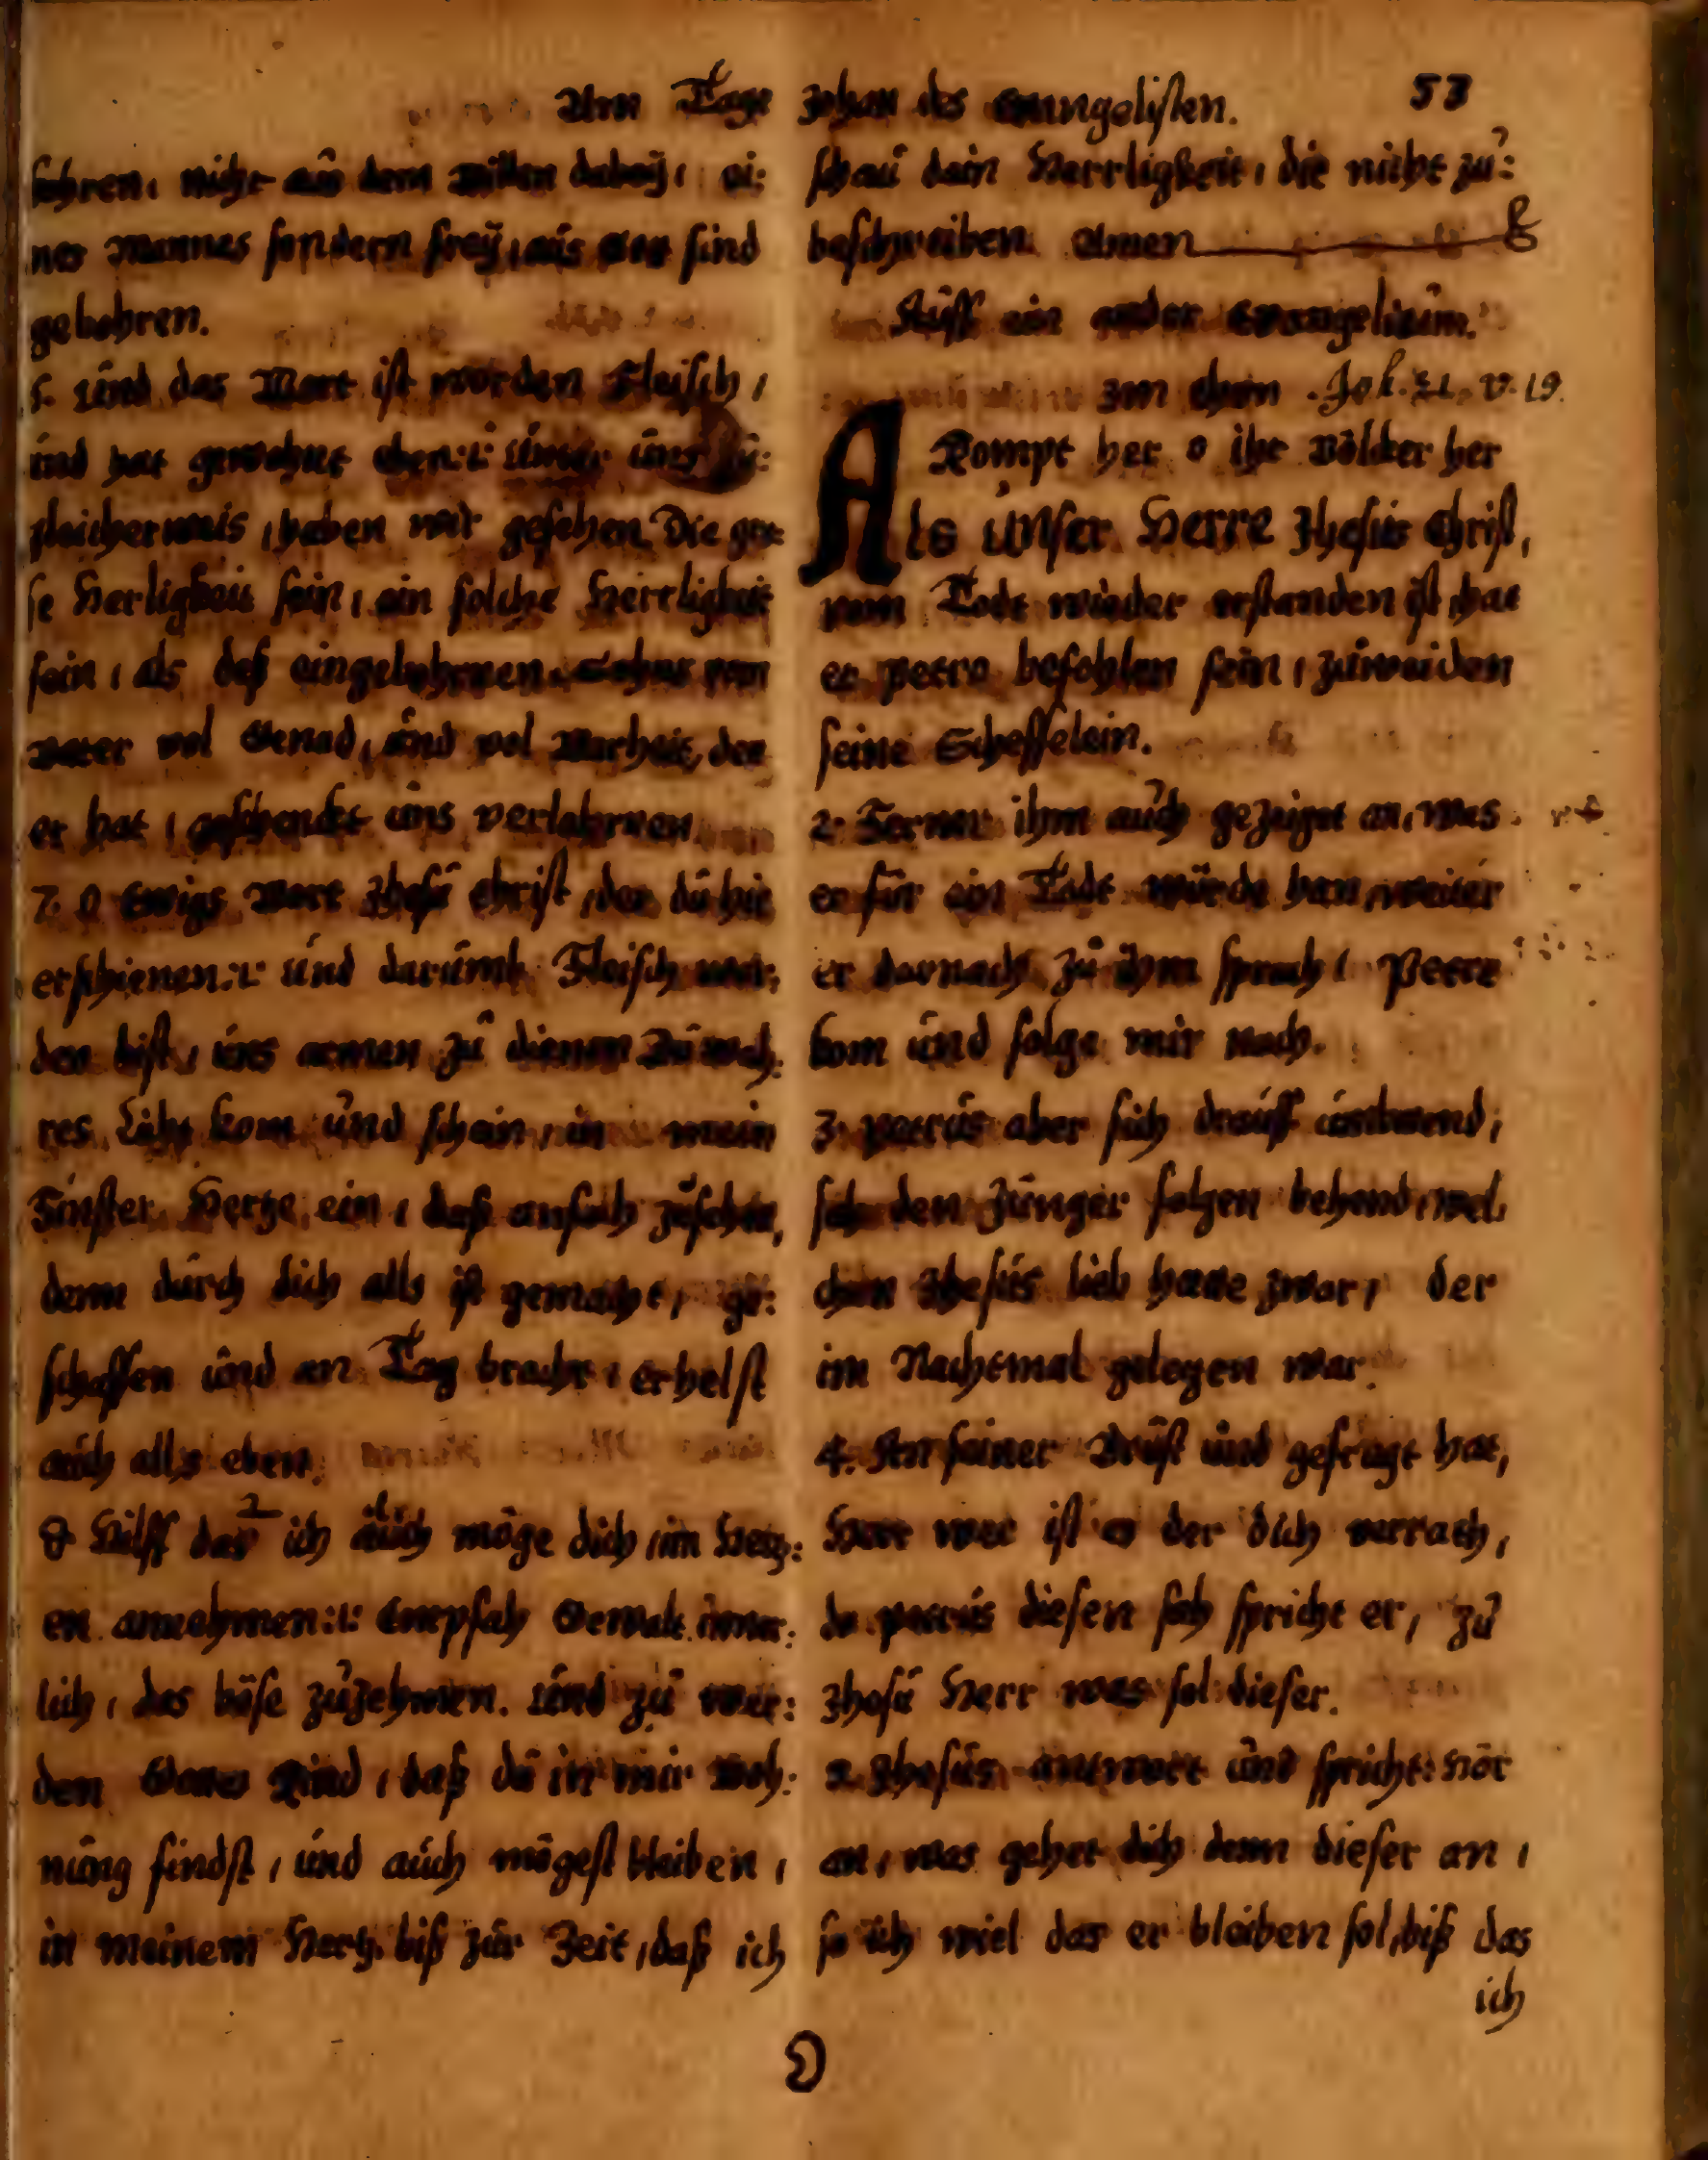 Am Tage Johan des Evangelisten. 53
bohren, nicht aus dem willen dabey, ei:
nes Mannes sondern frey, aus Gott sind
gebohren.
6. Und das Wort ist worden Fleisch,
und hat gewohnt eben :i: unter uns zu:
gleicher weis, haben wir gesehen, Die gros:
se Herligkeit sein, ein solche Herrligkeit
sein, als deß eingebohrnen Sohns vom
vater vol Genad, und vol Warheit, den
er hat, geschencket uns verlohrnen.
7. O Ewigs Wort Jhesu Christ, der du hie
erschienen :i: und darumb Fleisch wor:
den bist, uns armen zu dienen Du wah:
res Licht kom und schein, in mein
Finster Hertze ein, daß anfach zusehen,
denn durch dich alls ist gemacht, ge:
schaffen und an Tag bracht, erhelst
auch alls eben.
8 Hilff das ich auch möge dich, im Hertz:
en annehmen :i: Empfah Gewalt inner:
lich, das böse zuzehmen. Und zu wer:
den Gottes Kind, daß du in mir Woh:
nung findst, und auch mögest bleiben,
in meinem Hertz. biß zur Zeit, daß ich
schau dein Herrligkeit, die nicht zu:
beschreiben. Amen
Auff ein ander Evangelium.
Im thon Joh. 21. v. 19.
Kompt her o ihr völcker her
Als Unser Herre Jhesus Christ,
vom Todt wieder erstanden ist, hat
er Petro befohlen sein, zuweiden
seine Scheffelein.
2. Ferner ihm auch gezeiget an, was
er für ein Todt würde han, weiter
er darnach zu ihm sprach, Petre
kom und folge mir nach.
3. Petrus aber sich drauff umbwend,
sah den Jünger folgen behend, wel
chen Jhesus lieb hatte zwar, der
im Nachtmal gelegen war.
4. An seiner Brust und gefragt hat,
Herr wer ist es der dich verrath,
da Petrus diesen sah spricht er, zu
Jhesu Herr was sol dieser.
5. Jhesus antwort und spricht: Hör
an, was gehet dich denn dieser an,
so ich wiel das er bleiben sol, biß das
ich